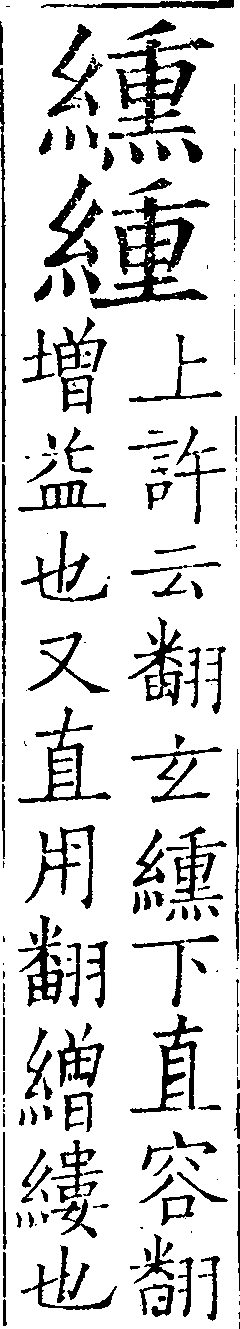 纁緟
上許云翻玄纁下直容翻
增益也又直用翻繒縷也